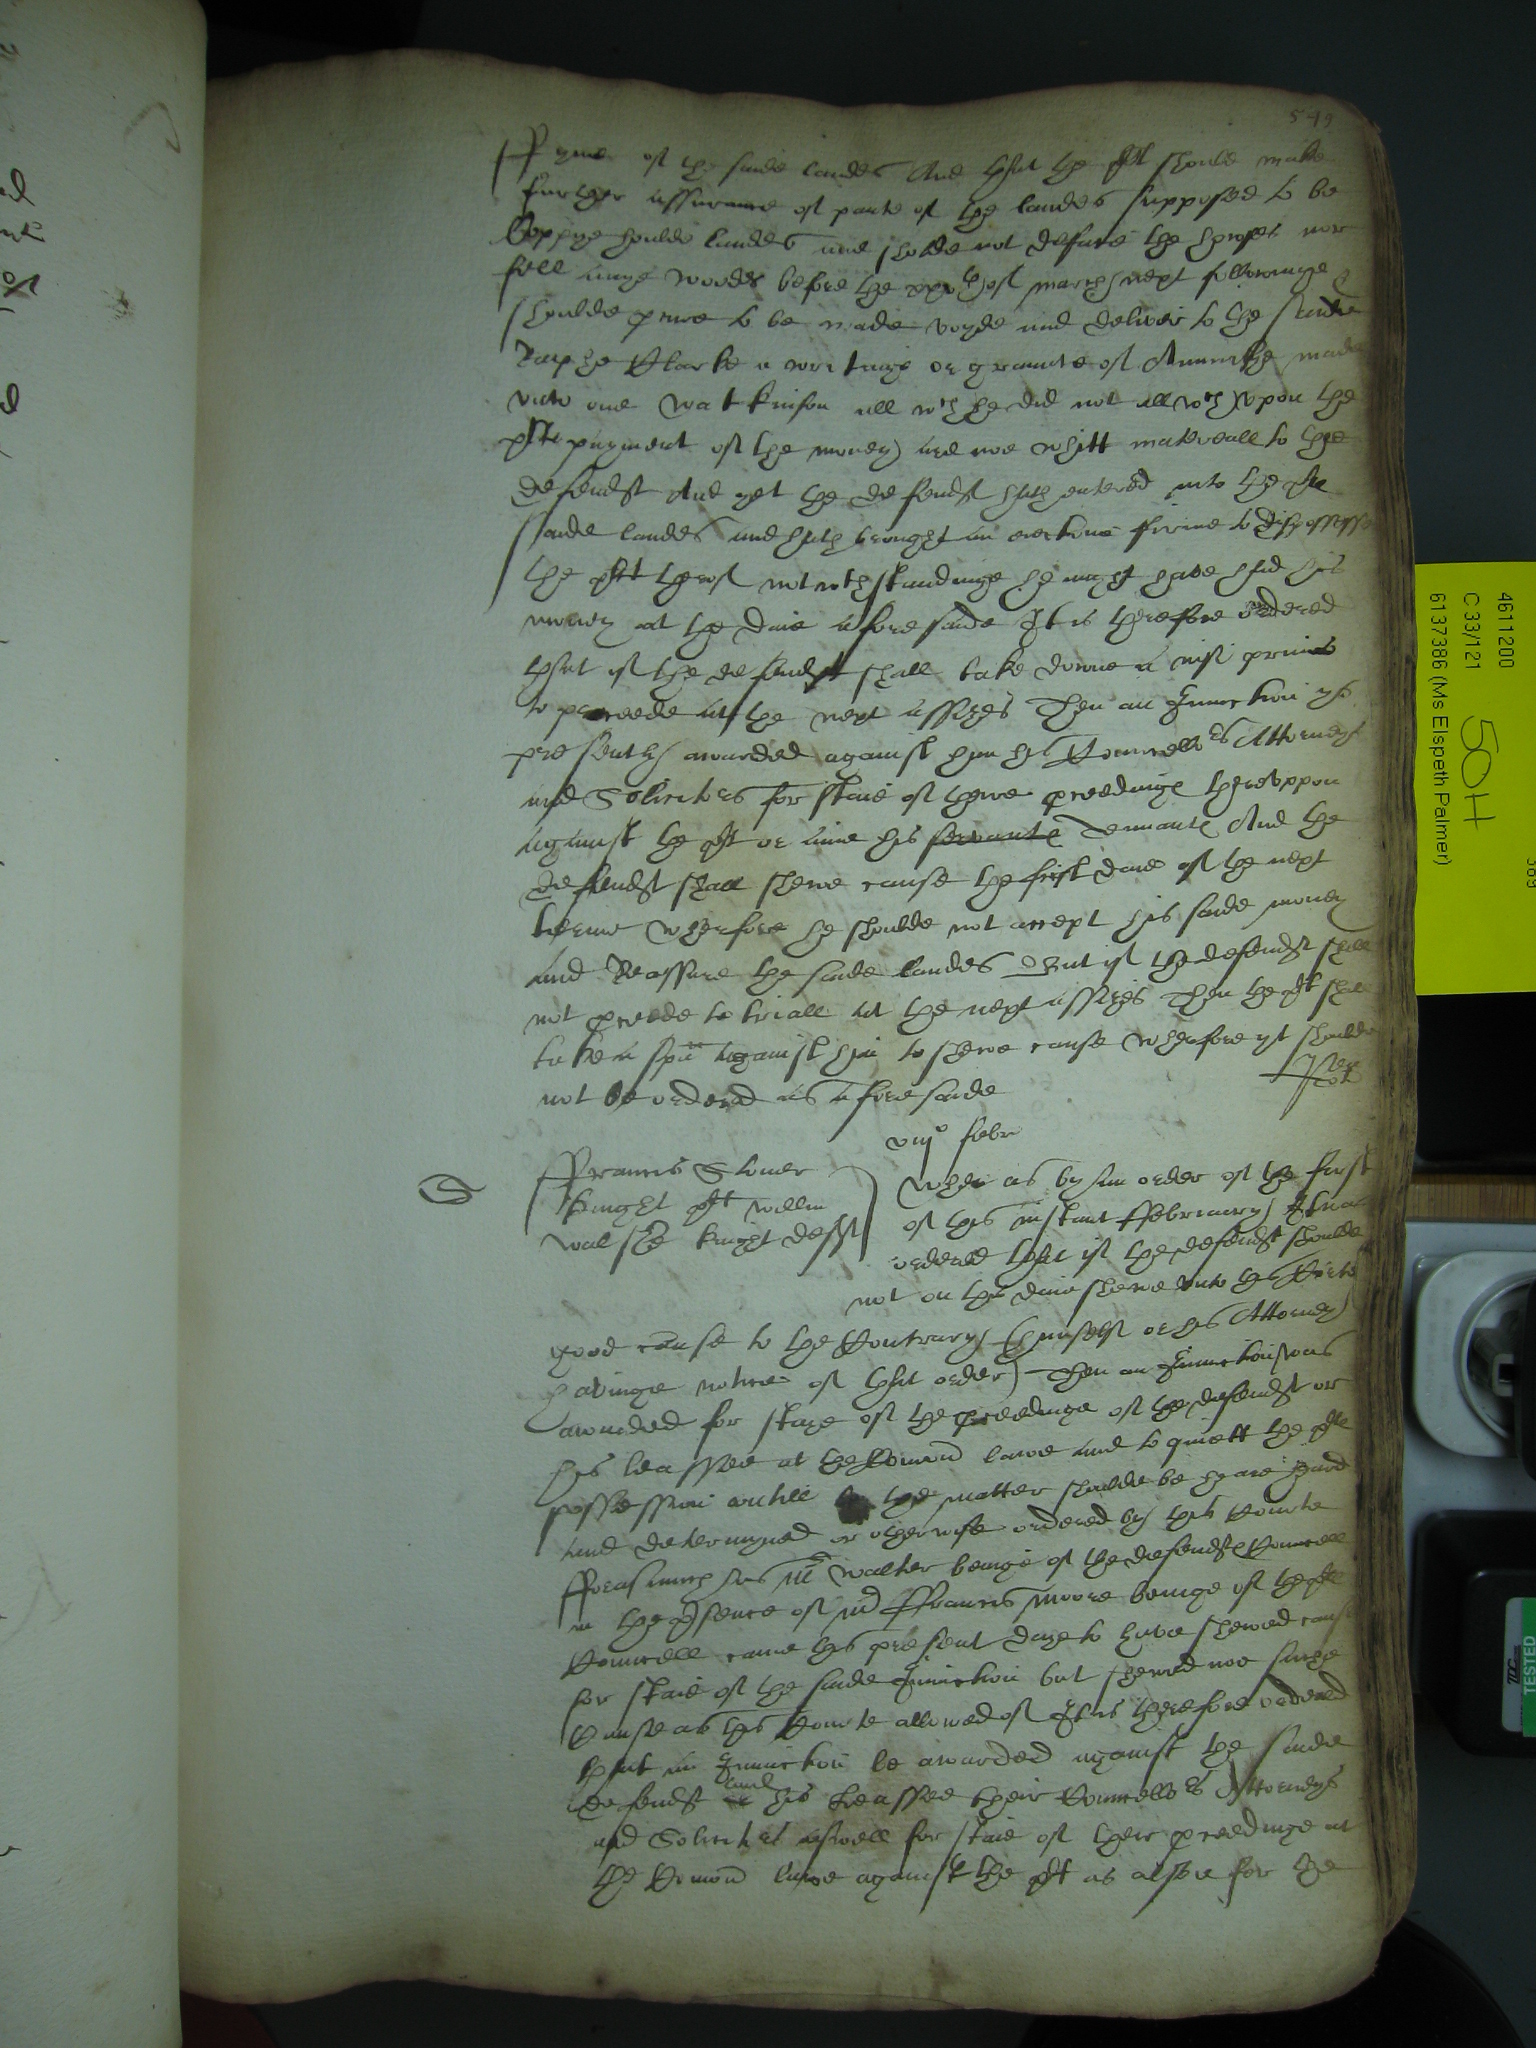 549
ffyne of the saide landes And that the plt should make
further assurance of parte of the landes supposed to be
Coppye houlde landes and sholde not deface the howses nor
fell anye woodes before the xxvth of march next followinge
shoulde procure to be made voyde and deliver to the saide
Raphe Clarke a writinge or graunte of Annuitye made
unto one Watkinson all wch he did not all wch upon the
pltes payment of the money are noe whitt materiall to the
defendt And yet the defendt hath entered into the
saide landes and hath brought an eiectione firme to dispossesse
the plt therof notwthstandinge he might have had his
money at the daie aforesaide It is therefore ordered
that if the defendt shall take downe a nisi prius
to proceede at the next assizes Then an Iniunction ys
presently awarded against him his Councellors Attorneys
and Solicitors for staie of there proceedinge thereuppon
against the plt or anie his servante Tennante And the
defendt shall shewe cause the first daie of the next
terme wherfore he shoulde not accept his saide money
and Reassure the saide landes But if the defendt shall
not proceede to triall at the next assizes Then the plt shall
take a spa against him to shewe cause wherfore yt shoulde
not be ordered as aforesaide
viijo febr
ffrancis Stoner
knight plt willm
walshe knight deft
Wher as by an order of the first
of this instant ffebruary It was
ordered that if the defendt shoulde
not on this daie shewe unto this Corte
good cause to the Contrary (himself or his Attorney
havinge notice of that order) Then an Iniunction was
awarded for staye of the proceedinge of the defendt or
his leassee at the Comon lawe and to quiett the plts
possession untill the matter shoulde be heare heard
and determyned or otherwise ordered by this Courte
fforasmuch as mr Walter beinge of the defendts Councell
in the psence of mr ffrancis moore beinge of the plts
Councell came this present daye to have shewed cause
for staie of the saide Iniunction but shewed noe suche
Cause as this Courte allowed of It is therefore ordered
that an Iniunction be awarded against the saide
defendt and his leassee their Councellors Attorneys
and Solicitors aswell for staie of their proceedinge at
the Comon lawe against the plt as alsoe for the
4611200
C 33/121
50H
6137386 (Ms Elspeth Palmer)
TESTED